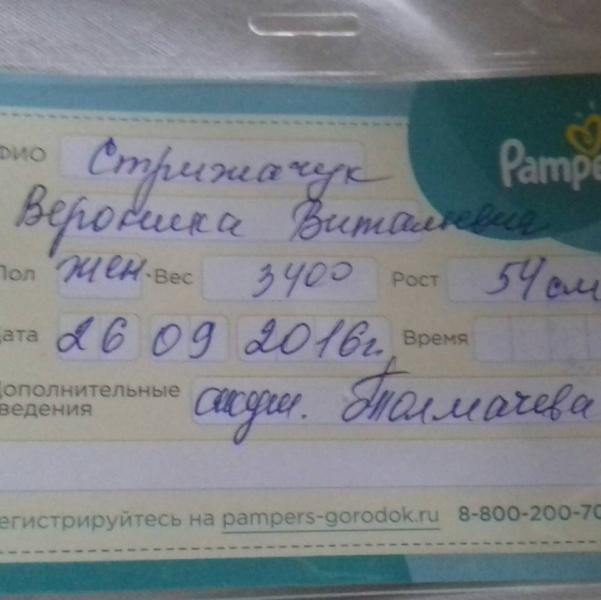 ФИО Стрижачук
Pampe
Вероника Витальевна
Пол жен. Вес 3400 Рост 54 см
Дата 26 09 2016г. Время
Дополнительные
сведения акуш. Толмачева
егистрируйтесь на pampers-gorodok.ru 8-800-200-70